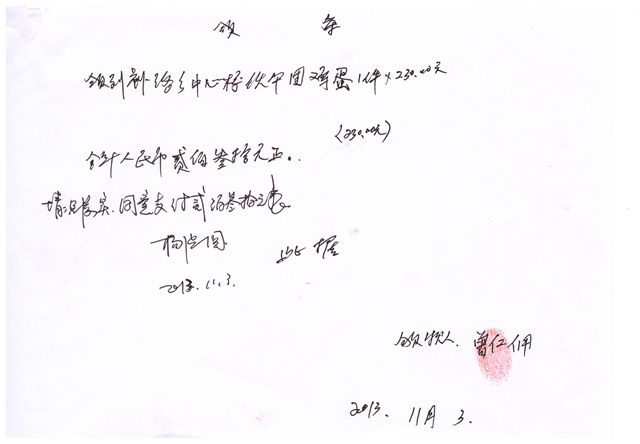 领 条
领到 中心校伙 团鸡蛋1件×230.00元
(230.00元)
合计人民币贰佰叁拾元正。
情况属实.同意支付贰佰叁拾元
杨 国
此据
2013.11.3.
领款人.曾仁佣
2013.11月3.